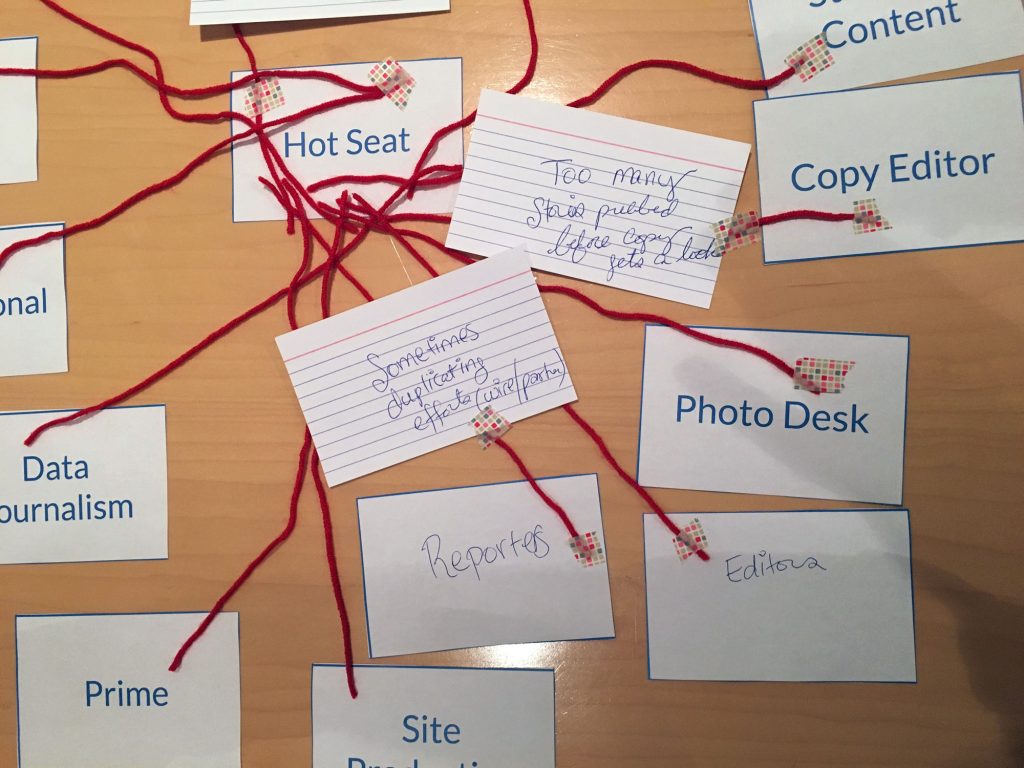 Content
Hot Seat
Copy Editor
Too many
Stories pubbed
before copy
gets a look
onal
Sometimes
duplicating
efforts (wire/partner)
Photo Desk
Data
ournalism
Reporters
Editors
Prime
Site